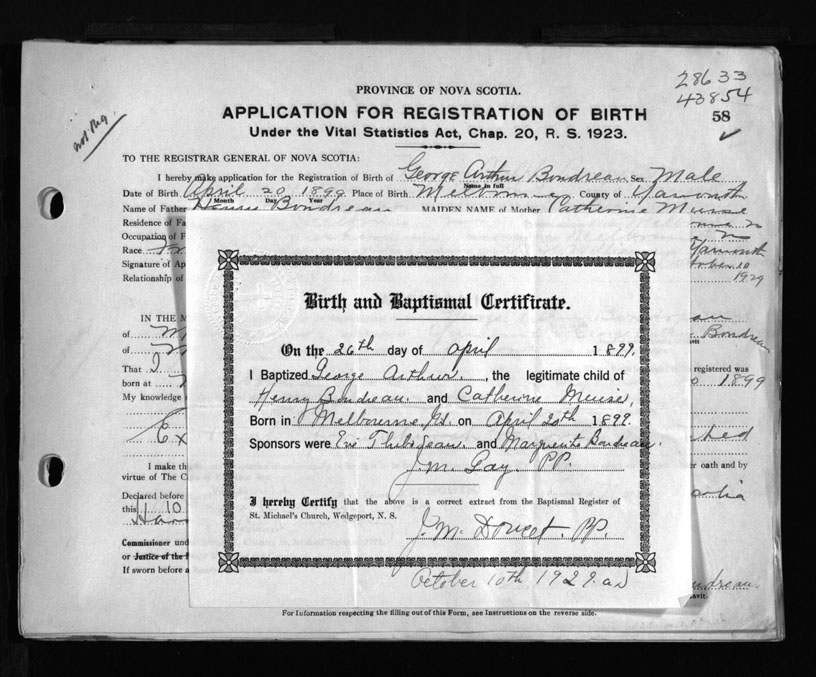 28633
43854
58
not Reg.
PROVINCE OF NOVA SCOTIA.
APPLICATION FOR REGISTRATION OF BIRTH
Under the Vital Statistics Act, Chap. 20, R. S. 1923.
TO THE REGISTRAR GENERAL OF NOVA SCOTIA:
I hereby make application for the Registration of Birth of George Arthur Boudreau Sex Male
Name in full
Date of Birth April 20 1899 Place of Birth County of Yarmouth
Month Day Year
Name of Father Henry Boudreau MAIDEN NAME of Mother Catherine Muise
Residence of Fa
Occupation of F
Race Yarmouth
Signature of Ap October 10
1929
Relationship of
IN THE M
of M Boudreau
of
That I registered was
born at 1899
My knowledge
Ex
I make th er oath and by
virtue of The C
Declared before
this 10
Commissioner und
or Justice of the
If sworn before a udreau
avit.
Birth and Baptismal Certificate.
On the 26th day of April 1899.
I Baptized George Arthur, the legitimate child of
Henry Boudreau and Catherine Muise,
Born in Melbourne, N.S. on April 20th 1899.
Sponsors were and Marguerite Boudreau.
J. M. Gay. PP.
I hereby Certify that the above is a correct extract from the Baptismal Register of
St. Michael's Church, Wedgeport, N. S.
J. M. Doucet PP.
October 10th 1929.
For Information respecting the filling out of this Form, see Instructions on the reverse side.